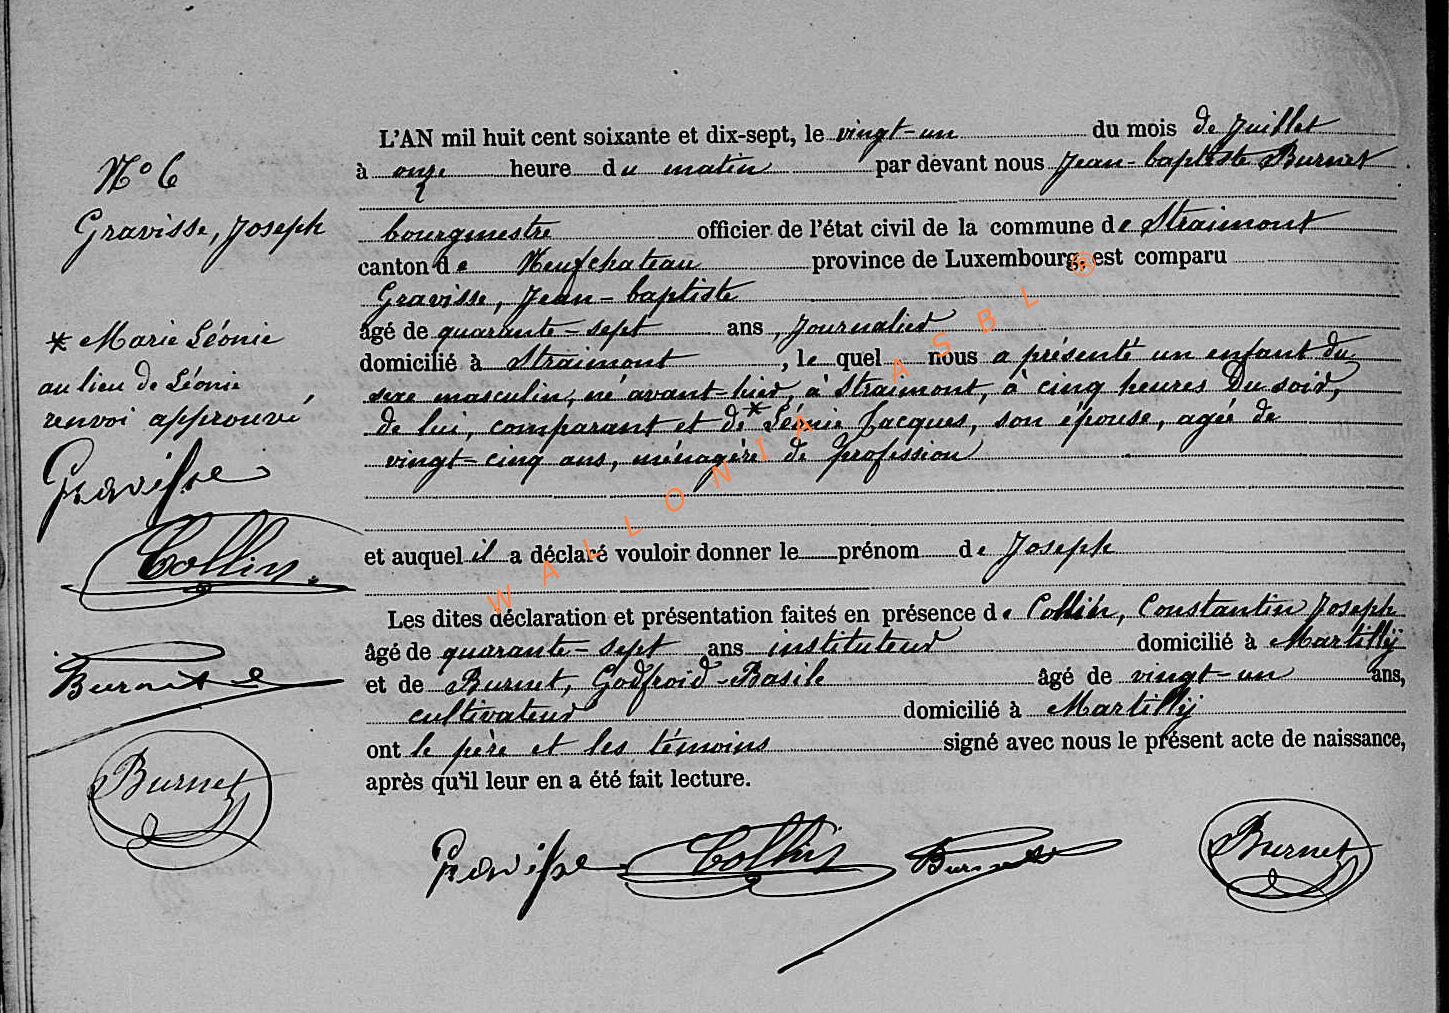 N° 6
Gravisse, Joseph
* Marie Léonie
au lieu de Léonie
renvoi approuvé
Gravisse
Collin.
Burnet
Burnet
L'AN mil huit cent soixante et dix-sept, le vingt-un du mois de Juillet
à onze heure du matin par devant nous Jean-baptiste Burnet
bourgmestre officier de l'état civil de la commune de Straimont
canton de Neufchateau province de Luxembourg, est comparu
Gravisse, Jean-baptiste
âgé de quarante-sept ans, Journalier
domicilié à Straimont, le quel nous a présenté un enfant du
sexe masculin, né avant-hier, à Straimont, à cinq heures du soir,
de lui, comparant et de * Léonie Jacques, son épouse, agée de
vingt-cinq ans, ménagère de profession
et auquel il a déclaré vouloir donner le prénom de Joseph
Les dites déclaration et présentation faites en présence de Collin, Constantin Joseph
âgé de quarante-sept ans instituteur domicilié à Martilly
et de Burnet, Godfroid-Basile âgé de vingt-un ans,
cultivateur domicilié à Martilly
ont le père et les témoins signé avec nous le présent acte de naissance,
après qu'il leur en a été fait lecture.
Gravisse Collin Burnet Burnet
WALLONIA ASBL ®